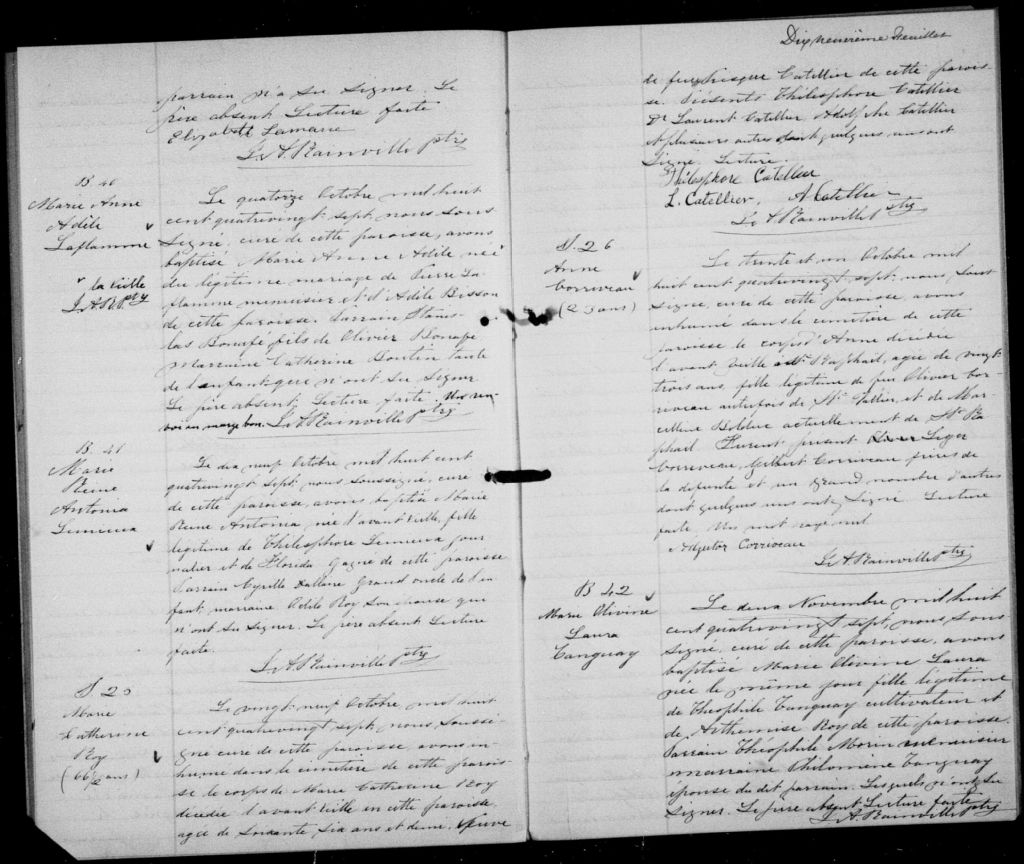 parrain n'a su signer. Le
père absent Lecture faite
Elizabeth Lamarre
L. A. Rainville ptre
B 40
Marie Anne
Adèle
Laflamme
la veille
L A R ptre
Le quatorze Octobre mil huit
cent quatrevingt sept, nous sous
signé, curé de cette paroisse, avons
baptisé Marie Anne Adèle née
du légitime mariage de Pierre La
flamme menuisier et d'Adèle Bisson
de cette paroisse. Parrain Stanis-
las fils de Olivier
Marraine Catherine Boutin tante
de l'enfant qui n'ont su signer
Le père absent. Lecture faite. Un ren-
voi en marge bon. L. A. Rainville ptre
B. 41
Marie
Reine
Antonia
Lemieux
Le dix neuf Octobre mil huit cent
quatrevingt sept nous soussigné, curé
de cette paroisse, avons baptisé Marie
Reine Antonia, née l'avant veille, fille
légitime de Thélesphore Lemieux jour
nalier et de Florida Gagné de cette paroisse
Parrain Cyrille Dallaire Grand oncle de l'en
fant, marraine Odile Roy son épouse qui
n'ont su signer. Le père absent Lecture
faite.
L. A. Rainville ptre
S 25
Marie
Catherine
Roy
(66½ ans)
Le vingt neuf Octobre mil huit
cent quatrevingt sept nous soussi-
gné curé de cette paroisse, avons in-
humé dans le cimetière de cette parois
se le corps de Marie Catherine Roy
décédée l'avant veille en cette paroisse
agée de soixante six ans et demi. Veuve
Dix neuvième Feuillet
de feu Catellier de cette parois
se. Présents Thélesphore Catellier
Laurent Catellier Adolphe Catellier
& plusieurs autres dont quelques uns ont
signé. Lecture.
Thélesphore Catellier
L. Catellier. A. Catellier
L. A. Rainville Ptre
S. 26
Anne
Corriveau
(23 ans)
Le trente et un Octobre mil
huit cent quatrevingt sept, nous, sous
signé, curé de cette paroisse, avons
inhumé dans le cimetière de cette
paroisse le corps d'Anne décédée
l'avant veille à St. Raphaël, agée de vingt
trois ans, fille légitime de feu Olivier Cor-
riveau autrefois de St. Vallier, et de Mar-
celline Bolduc actuellement de St Ra
phaël. Furent présent Léger
Corriveau, Gilbert Corriveau frères de
la défunte et un grand nombre d'autres
dont quelques uns ont signé Lecture
faite. Un mot rayé nul
Adjutor Corriveau
L. A. Rainville ptre
B 42
Marie Olivine
Laura
Tanguay
Le deux Novembre mil huit
cent quatrevingt sept, nous sous
signé, curé de cette paroisse, avons
baptisé Marie Olivine Laura
née le même jour fille légitime
de Théophile Tanguay cultivateur et
de Arthémise Roy de cette paroisse.
Parrain Théophile Morin menuisier
marraine Philomène Tanguay
épouse du dit parrain. Lesquels n'ont su
signer. Le père absent Lecture faite
L. A. Rainville ptre